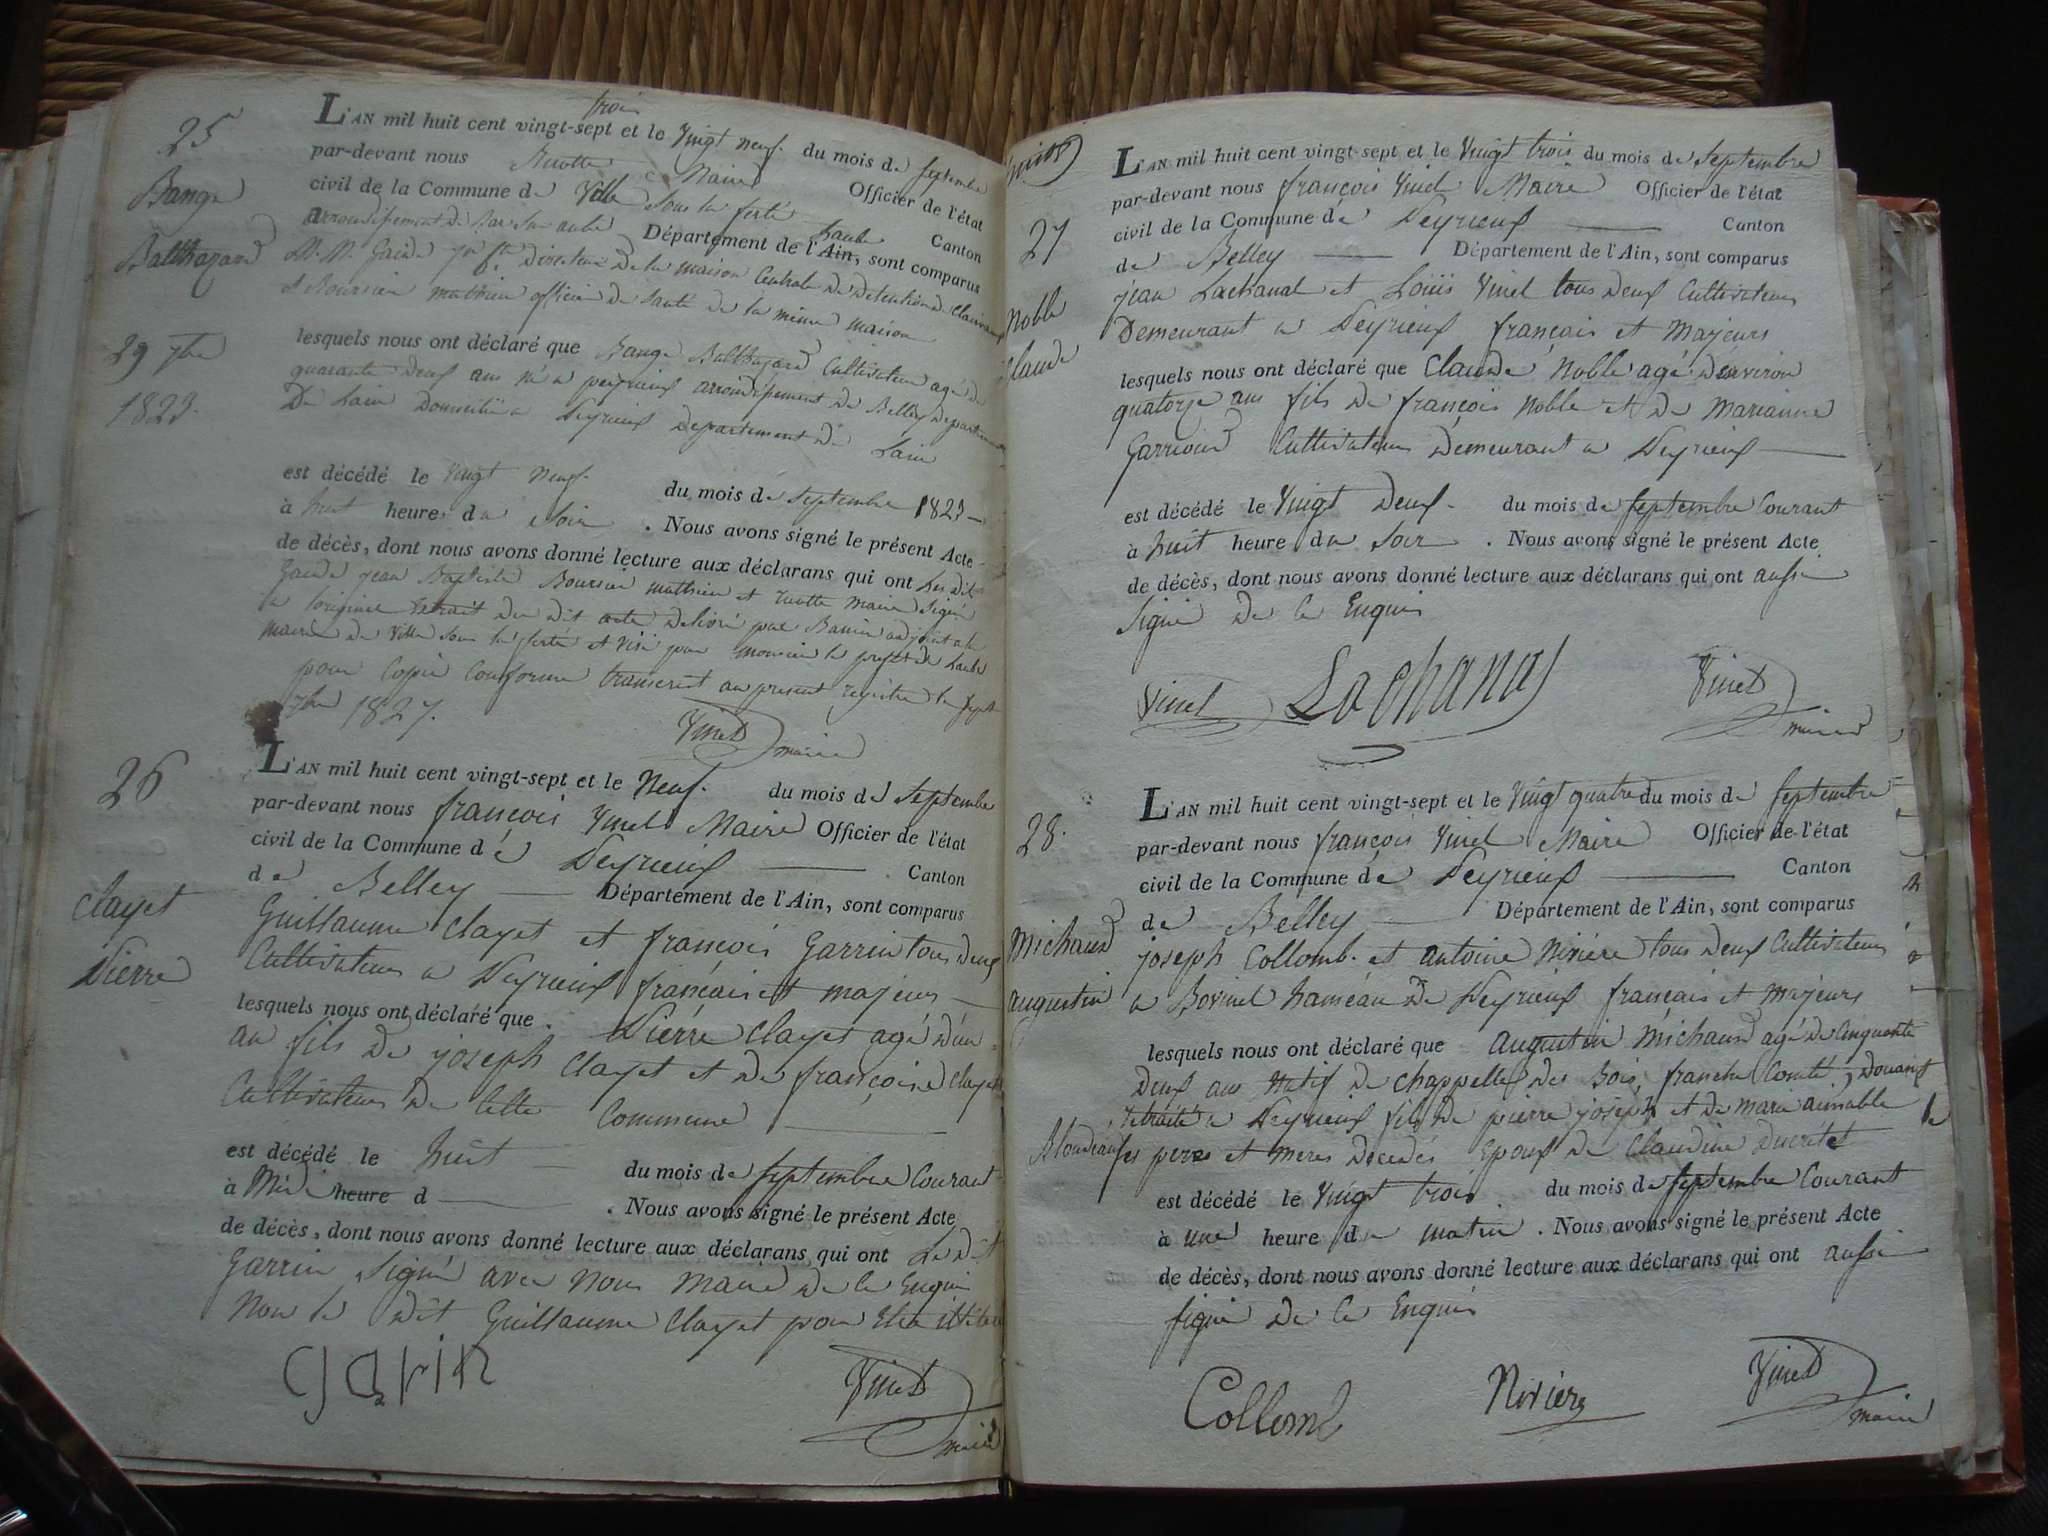 25
Bange
Balthazard
29 7bre
1823.
trois
L'AN mil huit cent vingt-sept et le Vingt neuf du mois de Septembre
par-devant nous Maire Officier de l'état
civil de la Commune de Ville Sous la ferté Canton
arrondissement de Bar sur aube Département de l'Ain, sont comparus
M. M. Gaide Directeur De la maison Centrale De Detention De Clairvaux
& Boursier mathieu officier De Santé de la même maison
lesquels nous ont déclaré que Bange Balthazard Cultivateur agé de
quarante Deux ans né a peyrieux arrondissement de Belley Departement
De Lain Domicilié a Peyrieux Departement De Lain
est décédé le Vingt Neuf du mois de Septembre 1823
à huit heure du Soir . Nous avons signé le présent Acte
de décès, dont nous avons donné lecture aux déclarans qui ont Les dits
Gaide jean Baptiste Boursier mathieu et maire Signé
a loriginal extrait du dit acte delivré par adjoint a la
mairie de Ville Sous la ferté et visé par monsieur le prefet de Laube
pour Copie Conforme transcrit au present registre le
7bre 1827.
Vinet maire
26
Clayet
Pierre
L'AN mil huit cent vingt-sept et le Neuf. du mois de Septembre
par-devant nous françois Vinet Maire Officier de l'état
civil de la Commune de Peyrieux Canton
de Belley Département de l'Ain, sont comparus
Guillaume Clayet et françois Garrin tous deux
Cultivateurs a Peyrieux français et majeurs
lesquels nous ont déclaré que Pierre Clayet agé d'un
an fils de joseph Clayet et de françoise Clayet
Cultivateurs de Cette Commune
est décédé le huit du mois de Septembre Courant
à Midi heure d . Nous avons signé le présent Acte
de décès, dont nous avons donné lecture aux déclarans qui ont Le dit
Garrin Signé avec nous maire de ce Enquis
Non le dit Guillaume Clayet pour Etre
garin
Vinet
maire
27
Noble
Claude
L'AN mil huit cent vingt-sept et le Vingt trois du mois de Septembre
par-devant nous françois Vinet Maire Officier de l'état
civil de la Commune de Peyrieux Canton
de Belley Département de l'Ain, sont comparus
jean Lachanal et Loüis Vinet tous deux Cultivateurs
Demeurant a Peyrieux français et Majeurs
lesquels nous ont déclaré que Claude Noble agé denviron
quatorze ans fils de françois Noble et de Marianne
Cultivateurs Demeurant a Peyrieux
est décédé le Vingt Deux du mois de Septembre Courant
à huit heure du Soir . Nous avons signé le présent Acte
de décès, dont nous avons donné lecture aux déclarans qui ont aussi
Signé de ce Enquis
Vinet Lachanal Vinet
maire
28.
Michaud
augustin
L'AN mil huit cent vingt-sept et le Vingt quatre du mois de Septembre
par-devant nous françois Vinet Maire Officier de l'état
civil de la Commune de Peyrieux Canton
de Belley Département de l'Ain, sont comparus
joseph Collomb. et antoine Nivière tous deux Cultivateurs
a Bovinel hameau de Peyrieux français et Majeurs
lesquels nous ont déclaré que augustin Michaud agé de Cinquante
Deux ans Natif de Chappelle des Bois, franche Comté,
retraité a Peyrieux fils de pierre joseph et de marie aimable
Blondeau ses peres et meres Décedés Epoux de Claudine
est décédé le Vingt trois du mois de Septembre Courant
à une heure du matin . Nous avons signé le présent Acte
de décès, dont nous avons donné lecture aux déclarans qui ont aussi
signé de ce Enquis
Collomb Niviere Vinet
maire